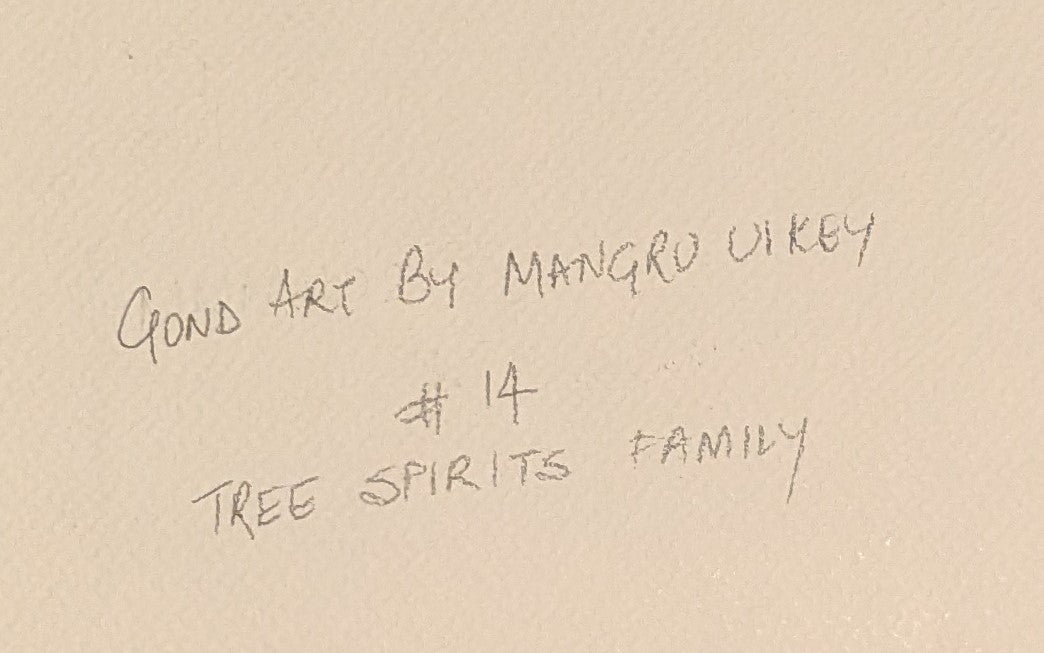 GOND ART BY MANGRU UIKEY
# 14
TREE SPIRITS FAMILY